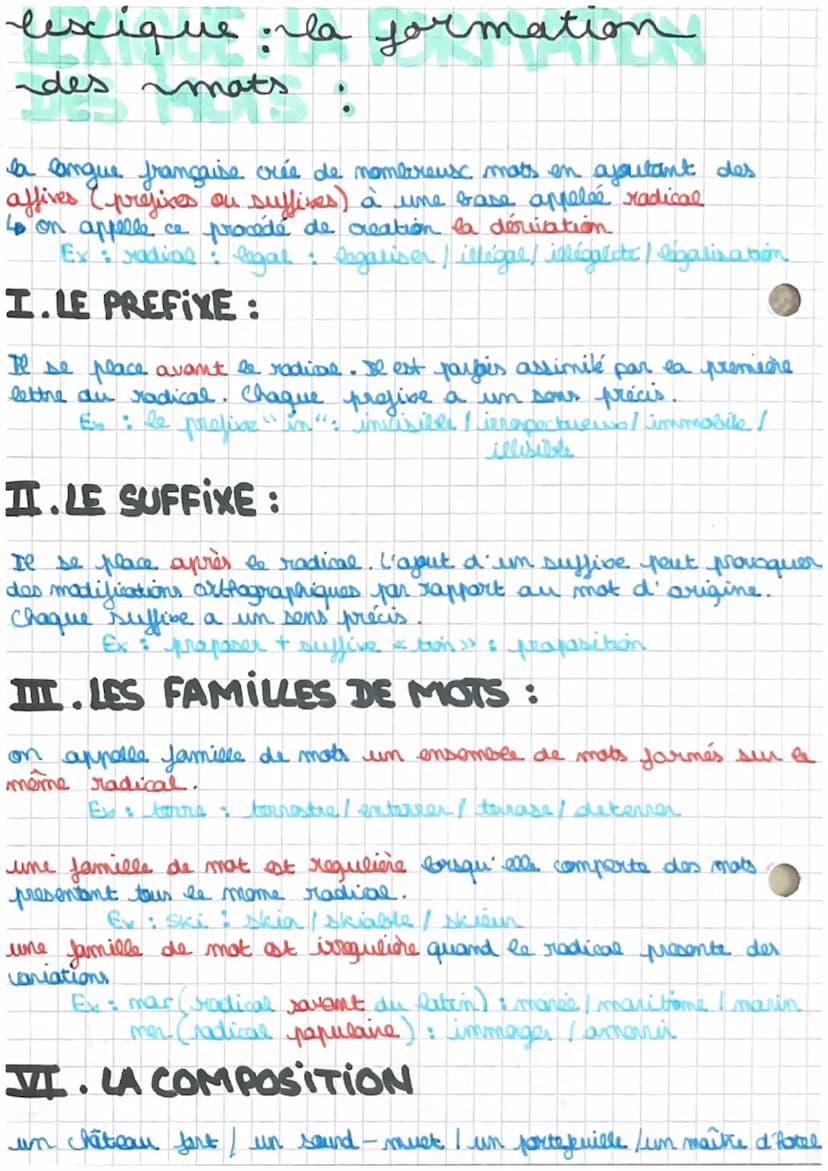 lexique : la formation
des mots :
la langue française crée de nombreux mots en ajoutant des
affixes (préfixes ou suffixes) à une base appelée radical
↳ on appelle ce procédé de creation la dérivation
Ex : radical : légal : légaliser / illégal / illégalité / légalisation
I. LE PREFiXE :
Il se place avant le radical. Il est parfois assimilé par la première
lettre du radical. Chaque préfixe a un sens précis.
Ex : le préfixe "in" : invisible / irrespectueux / immobile /
illisible
II. LE SUFFiXE :
Il se place après le radical. L'ajout d'un suffixe peut provoquer
des modifications orthographiques par rapport au mot d'origine.
Chaque suffixe a un sens précis.
Ex : proposer + suffixe « tion » : proposition
III. LES FAMiLLES DE MOTS :
on appelle famille de mots un ensemble de mots formés sur le
même radical.
Ex : terre : terrestre / enterrer / terrase / deterrer
une famille de mot est regulière lorsqu'elle comporte des mots
presentant tous le mome radical.
Ex : ski : skier / skiable / skieur
une famille de mot est irregulière quand le radical presente des
variations
Ex : mar (radical savant du latin) : marée / maritime / marin
mer (radical papulaire) : immerger / amerrir
VI. LA COMPOSiTiON
un château fort / un sourd-muet / un portefeuille / un maître d'hotel